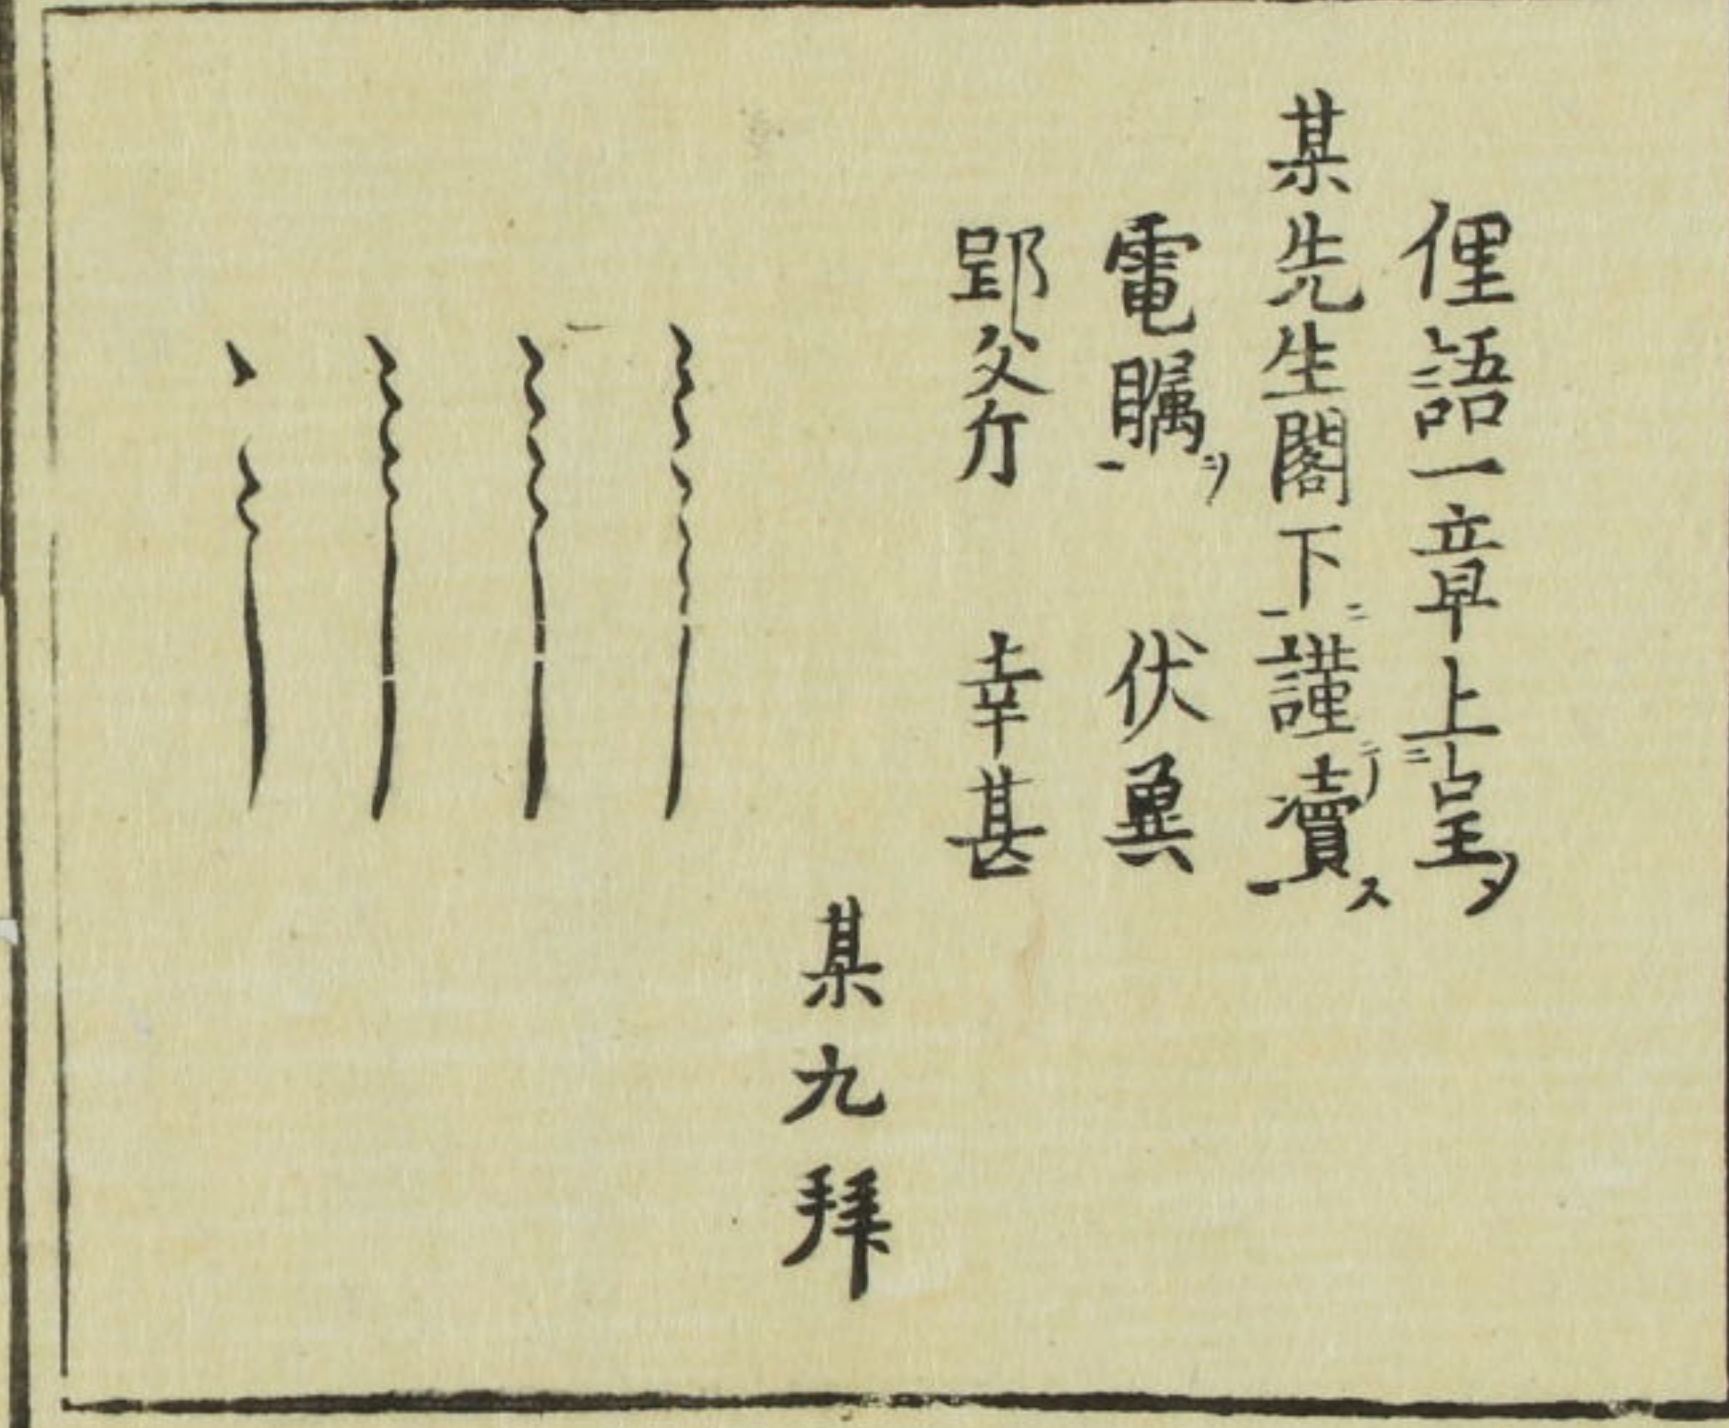 俚語一章上呈
某先生閣下謹瀆
電矚 伏冀
郢斧 幸甚
某九拝